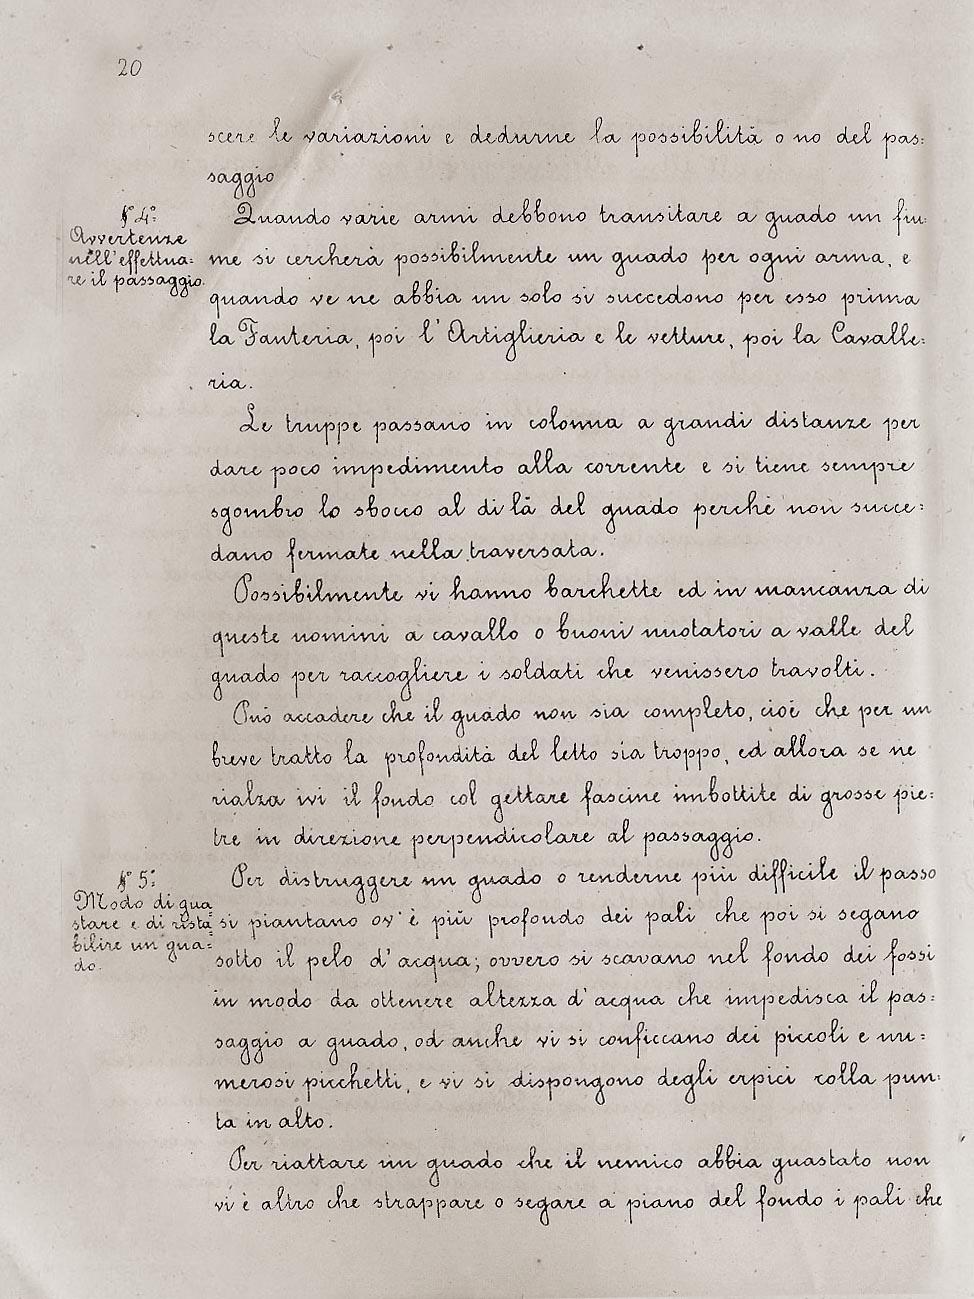 20
scere le variazioni e dedurne la possibilità o no del pas:
saggio
§° 4°:
Avvertenze
nell'effettua:
re il passaggio.
Quando varie armi debbono transitare a guado un fiu:
me si cercherà possibilmente un guado per ogni arma, e
quando ve ne abbia un solo si succedono per esso prima
la Fanteria, poi l'Artiglieria e le vetture, poi la Cavalle:
ria.
Le truppe passano in colonna a grandi distanze per
dare poco impedimento alla corrente e si tiene sempre
sgombro lo sbocco al di là del guado perchè non succe:
dano fermate nella traversata.
Possibilmente vi hanno barchette ed in mancanza di
queste uomini a cavallo o buoni nuotatori a valle del
guado per raccogliere i soldati che venissero travolti.
Può accadere che il guado non sia completo, cioè che per un
breve tratto la profondità del letto sia troppo, ed allora se ne
rialza ivi il fondo col gettare fascine imbottite di grosse pie:
tre in direzione perpendicolare al passaggio.
§° 5°:
Modo di gua
stare e di rista:
bilire un gua:
do.
Per distruggere un guado o renderne più difficile il passo
si piantano ov'è più profondo dei pali che poi si segano
sotto il pelo d'acqua; ovvero si scavano nel fondo dei fossi
in modo da ottenere altezza d'acqua che impedisca il pas:
saggio a guado, od anche vi si conficcano dei piccoli e nu:
merosi picchetti, e vi si dispongono degli erpici colla pun:
ta in alto.
Per riattare un guado che il nemico abbia guastato non
vi è altro che strappare o segare a piano del fondo i pali che